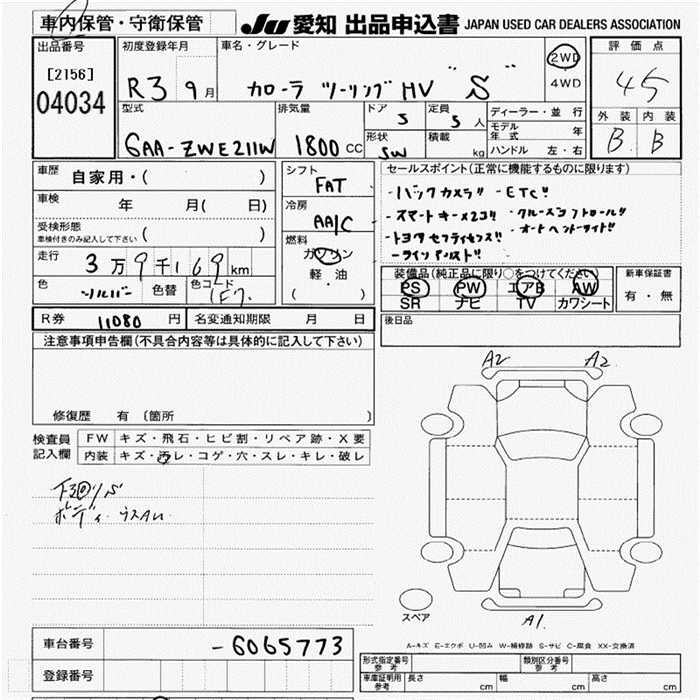 車内保管・守衛保管
JU 愛知 出品申込書 JAPAN USED CAR DEALERS ASSOCIATION
出品番号
[2156]
04034
初度登録年月
R3 9月
車名・グレード
カローラ ツーリング HV "S"
2WD
4WD
評価点
4.5
外装 内装
B B
型式
6AA-ZWE211W
排気量
1800cc
ドア 5
定員 5人
形状 SW
積載 kg
ディーラー・並行
モデル年式 年
ハンドル 左・右
車歴
自家用・( )
車検 年 月( 日)
受検形態
車検付きのみ記入して下さい ( )
走行
3万9千169km
色 シルバー 色替 色コード 1F7
シフト
FAT
冷房
AA/C
燃料
ガソリン
軽・油
( )
セールスポイント(正常に機能するものに限ります)
・バックカメラ!! ・ETC!!
・スマートキー×2コ!! ・クルーズコントロール!!
・トヨタセフティセンス!! ・オートヘッドライト!!
装備品(純正品に限り○をつけてください)
PS PW エアB AW
SR ナビ TV カワシート
新車保証書
有・無
R券 11080円 名変通知期限 月 日
後日品
注意事項申告欄(不具合内容等は具体的に記入して下さい)
修復歴 有 〔箇所 〕
検査員記入欄
FW キズ・飛石・ヒビ割・リペア跡・X要
内装 キズ・汚レ・コゲ・穴・スレ・キレ・破レ
下回リS
ボディ ウスAU
A2 A2
スペア
A1
A-キズ E-エクボ U-凹み W-補修跡 S-サビ C-腐食 XX-交換済
車台番号 -6065773
登録番号
形式指定番号 参考 類別区分番号 参考
車庫証明用 参考 長さ cm 幅 cm 高さ cm